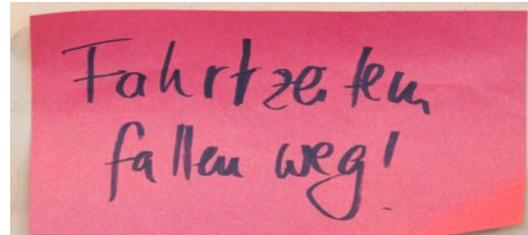 Fahrtzeiten
fallen weg!